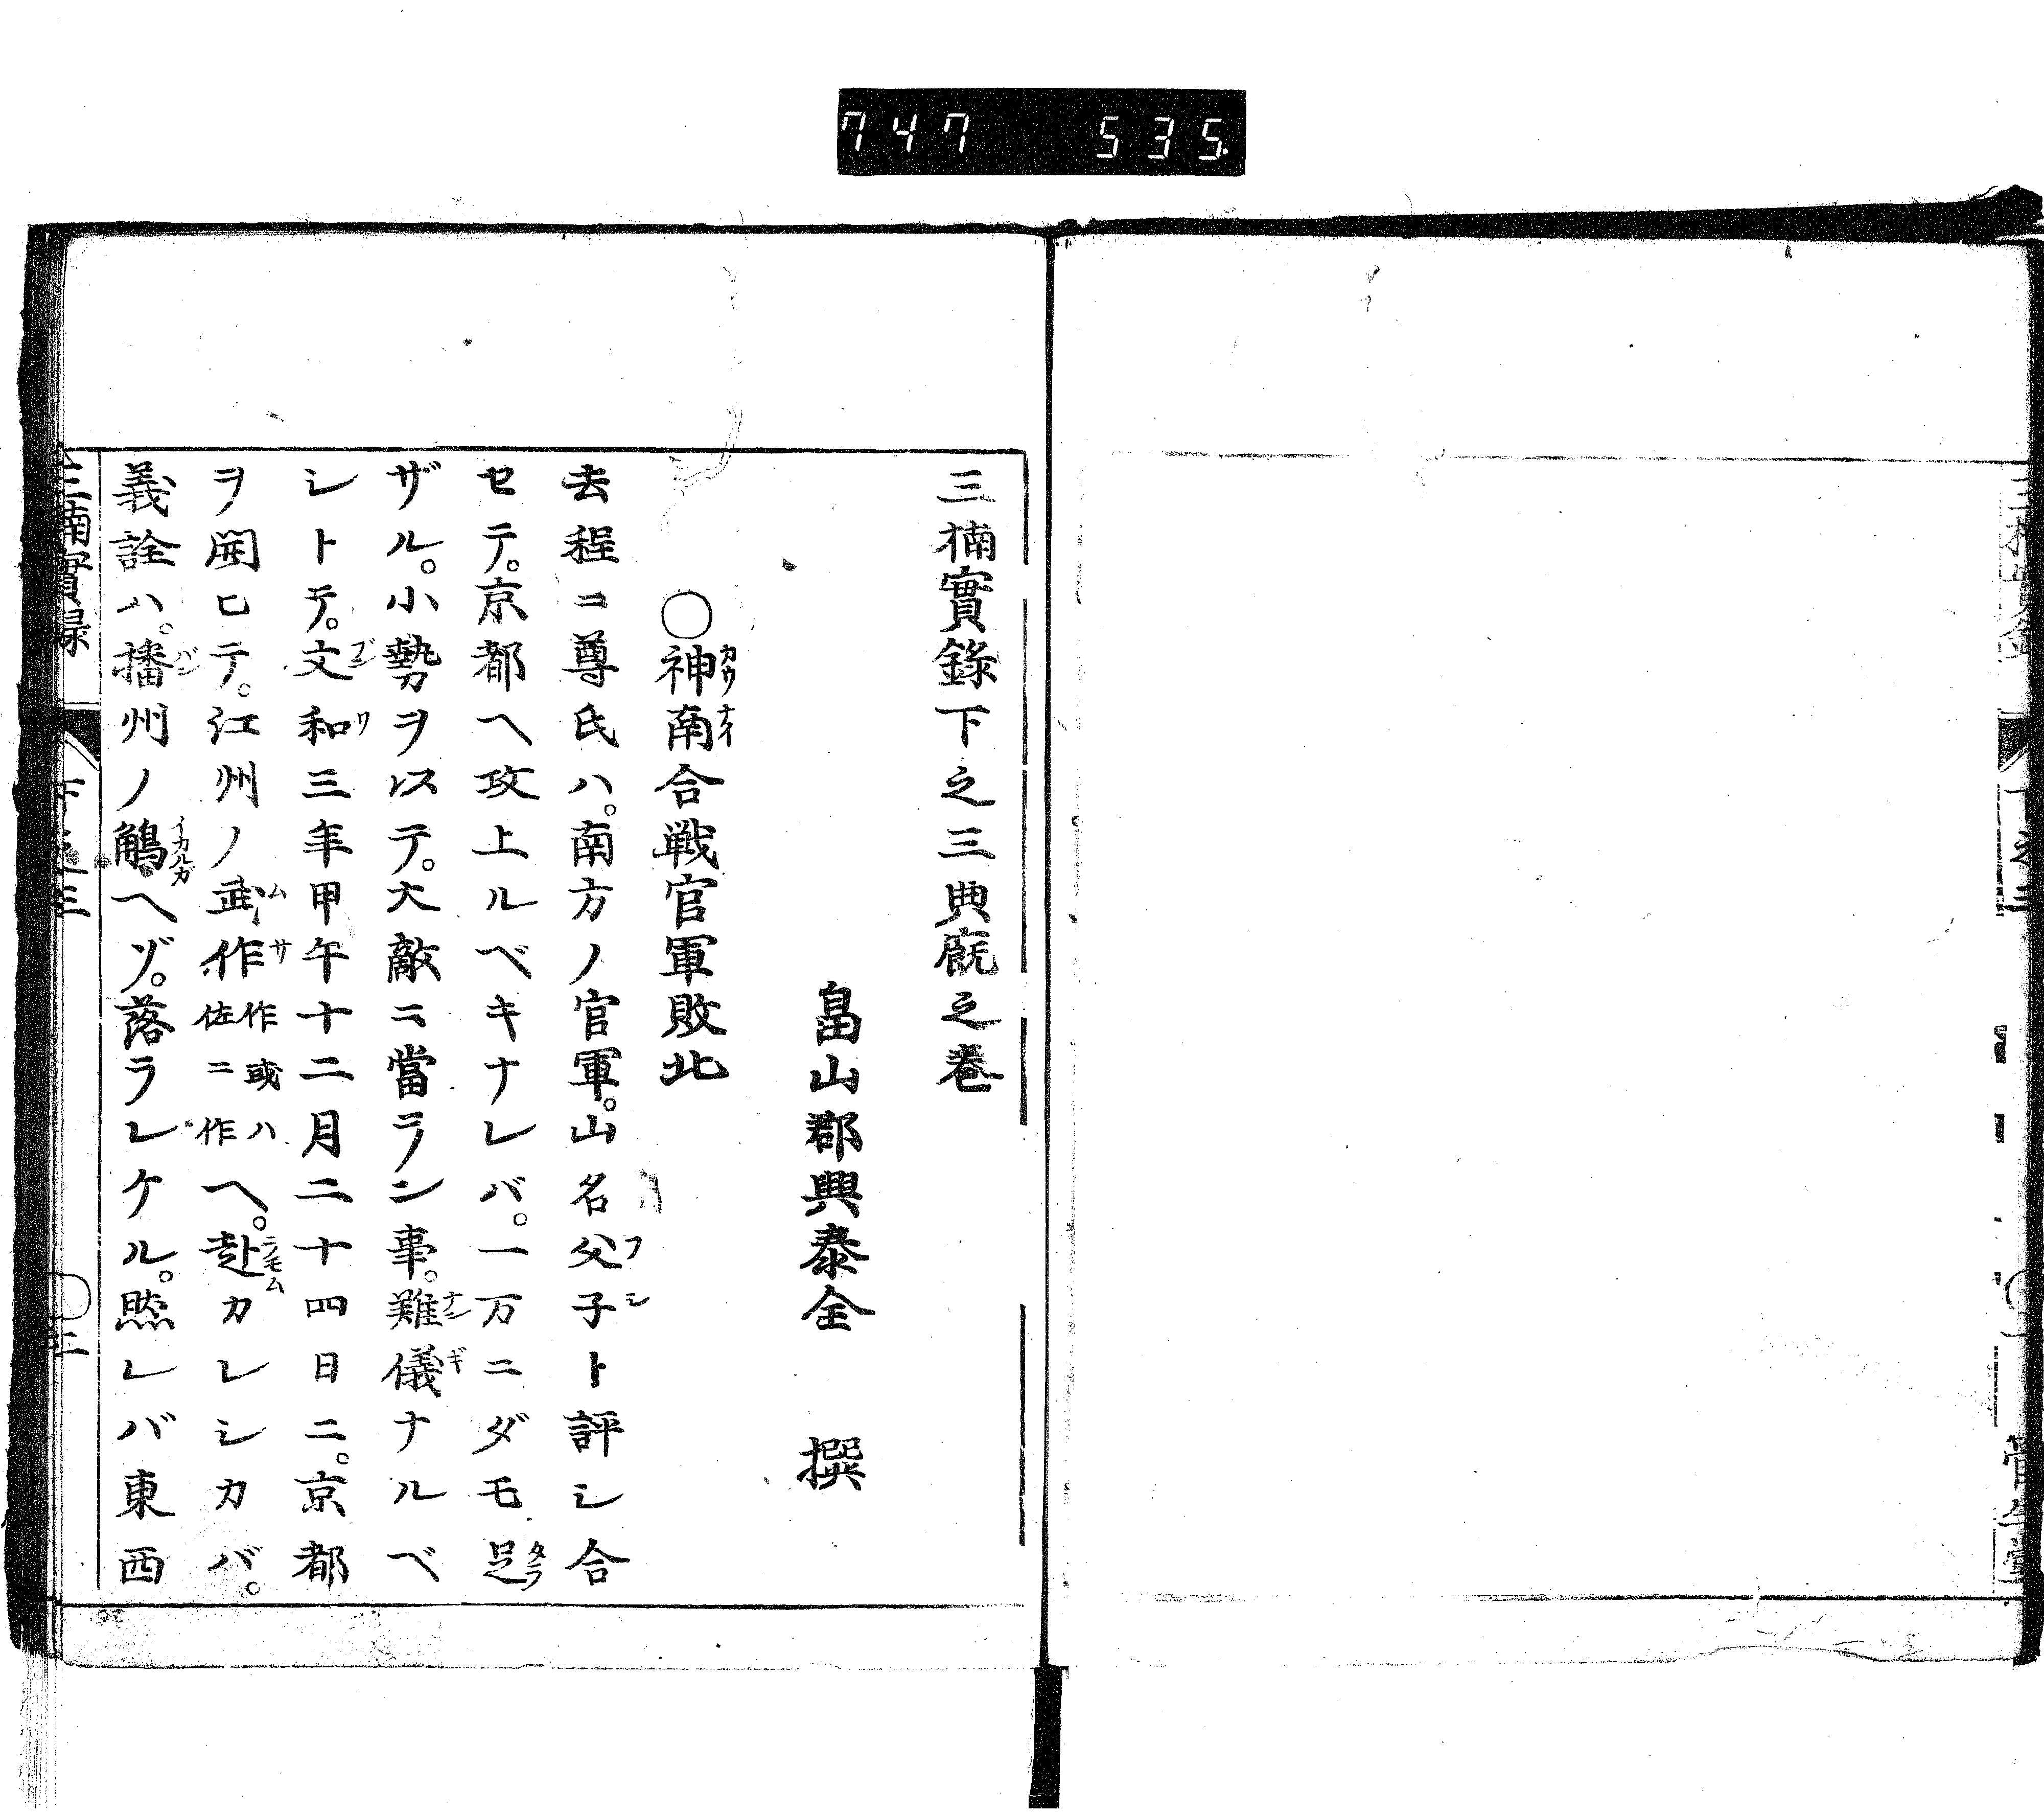 747 535
三楠實錄下之三典廐之巻
畠山郡興泰全 撰
○神南合戦官軍敗北
去程ニ尊氏ハ。南方ノ官軍。山名父子ト評シ合
セテ。京都ヘ攻上ルベキナレバ。一万ニダモ足
ザル。小勢ヲ以テ。大敵ニ當ラン事。難儀ナルベ
シトテ。文和三年甲午十二月二十四日ニ。京都
ヲ開ヒテ。江州ノ武作作或ハ佐ニ作ヘ。赴カレシカバ。
義詮ハ。播州ノ鵤ヘゾ。落ラレケル。然レバ東西
三楠實録 下之三 三